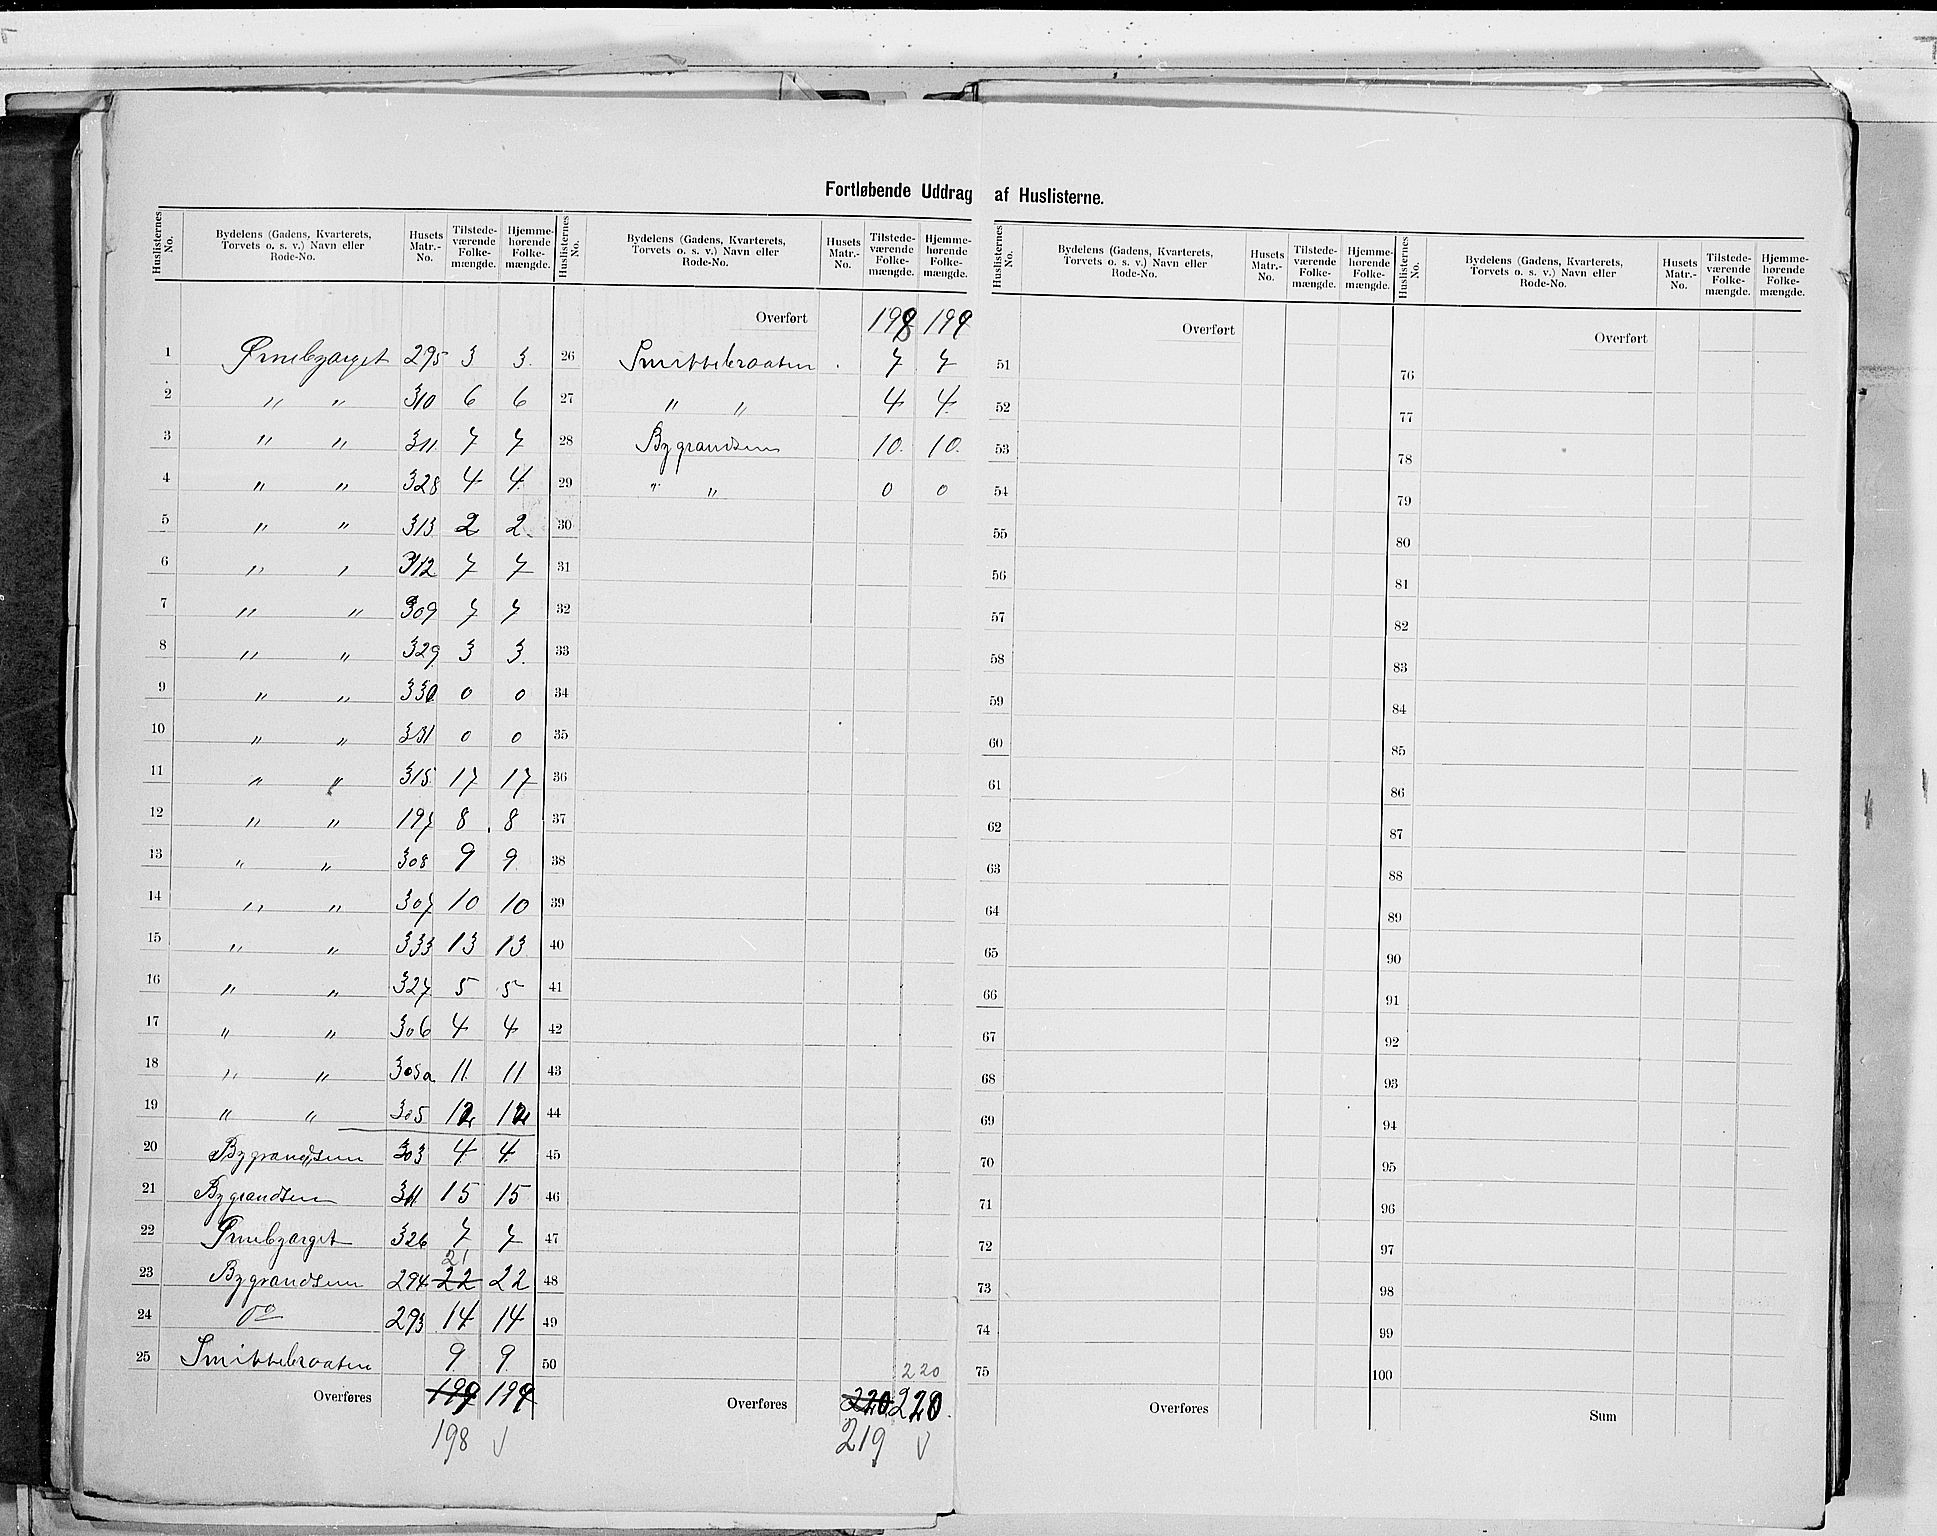 Fortløbende Uddrag af Huslisterne.
Huslisternes No. Bydelens (Gadens, Kvarterets, Torvets o. s. v.) Navn eller Rode-No. Husets Matr.-No. Tilstedeværende Folkemængde. Hjemmehørende Folkemængde.
1 Ørnebjærget 295 3 3
2 " " 310 6 6
3 " " 311 7 7
4 " " 328 4 4
5 " " 313 2 2
6 " " 312 7 7
7 " " 309 7 7
8 " " 329 3 3
9 " " 330 0 0
10 " " 331 0 0
11 " " 315 17 17
12 " " 197 8 8
13 " " 308 9 9
14 " " 307 10 10
15 " " 333 13 13
16 " " 327 5 5
17 " " 306 4 4
18 " " 305a 11 11
19 " " 305 12 12
20 Bygrændsen 303 4 4
21 Bygrændsen 311 15 15
22 Ørnebjærget 326 7 7
23 Bygrændsen 294 22 21 22
24 Do 293 14 14
25 Smittebraaten 9 9
Overføres 199 199
198 √
Huslisternes No. Bydelens (Gadens, Kvarterets, Torvets o. s. v.) Navn eller Rode-No. Husets Matr.-No. Tilstedeværende Folkemængde. Hjemmehørende Folkemængde.
Overført 198 199
26 Smittebraaten 7 7
27 " " 4 4
28 Bygrændsen 10 10
29 " " 0 0
30
31
32
33
34
35
36
37
38
39
40
41
42
43
44
45
46
47
48
49
50
220
Overføres 220 220
219 √
Huslisternes No. Bydelens (Gadens, Kvarterets, Torvets o. s. v.) Navn eller Rode-No. Husets Matr.-No. Tilstedeværende Folkemængde. Hjemmehørende Folkemængde.
Overført
51
52
53
54
55
56
57
58
59
60
61
62
63
64
65
66
67
68
69
70
71
72
73
74
75
Overføres
Huslisternes No. Bydelens (Gadens, Kvarterets, Torvets o. s. v.) Navn eller Rode-No. Husets Matr.-No. Tilstedeværende Folkemængde. Hjemmehørende Folkemængde.
Overført
76
77
78
79
80
81
82
83
84
85
86
87
88
89
90
91
92
93
94
95
96
97
98
99
100
Sum